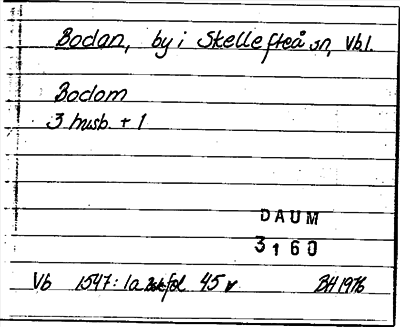 Bodan, by i Skellefteå sn, Vbl.
Bodom
3 husb. + 1
DAUM
3160
Vb 1547: 1a 45 v BH 1976